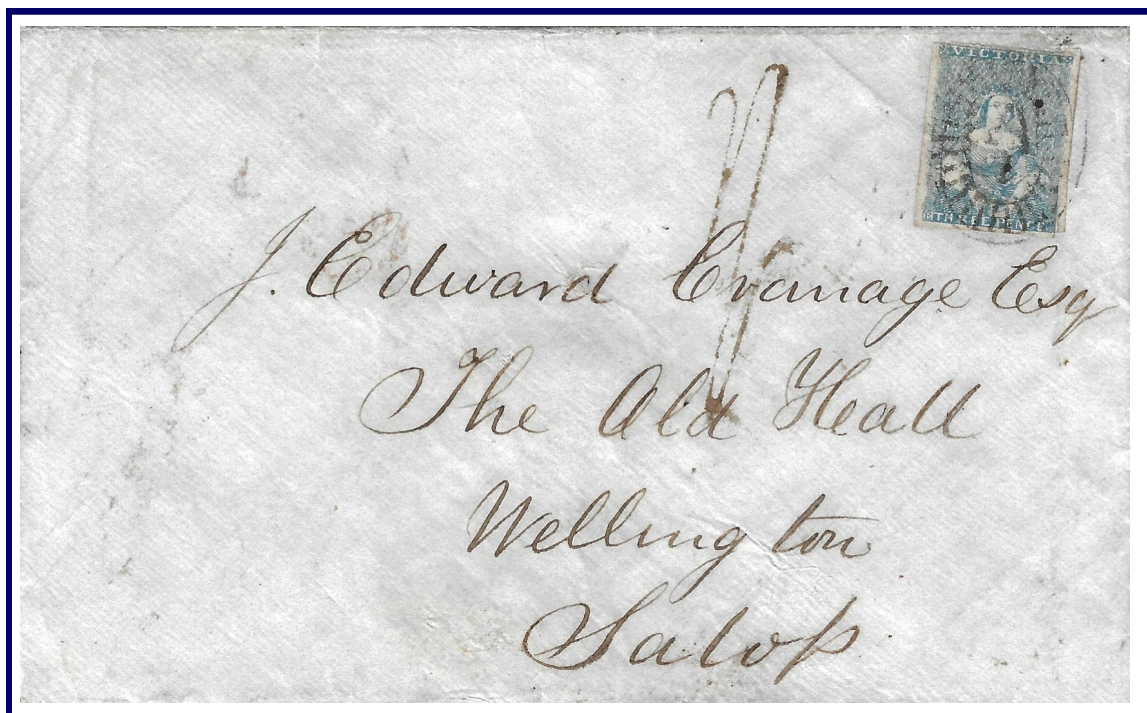 VICTORIA
THREE PENCE
J. Edward Cranage Esq
The Old Hall
Wellington
Salop